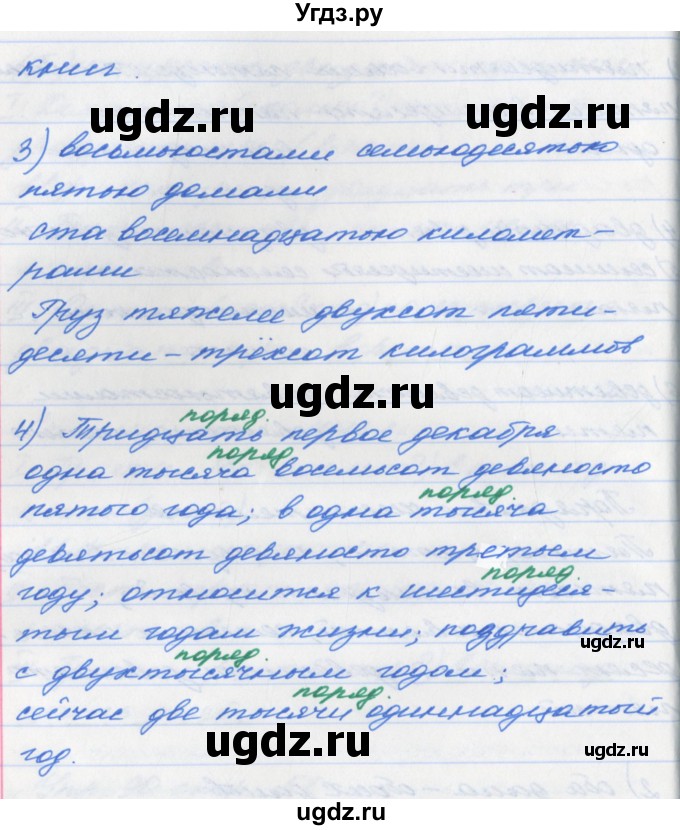 Угдз.ру
книг.
ugdz.ru
ugdz.ru
3) восьмьюстами семьюдесятью
пятью домами
ста восемнадцатью километ-
рами
Груз тяжелее двухсот пяти-
десяти - трёхсот килограммов
ugdz.ru
поряд.
4) Тридцать первое декабря
поряд.
одна тысяча восемьсот девяносто
поряд.
пятого года; в одна тысяча
девятьсот девяносто третьем
поряд.
году; относится к шестидеся-
тым годам жизни; поздравить
ugdz.ru
поряд.
с двухтысячным годом;
поряд.
сейчас две тысячи одиннадцатый
год.
ugdz.ru
ugdz.ru
ugdz.ru